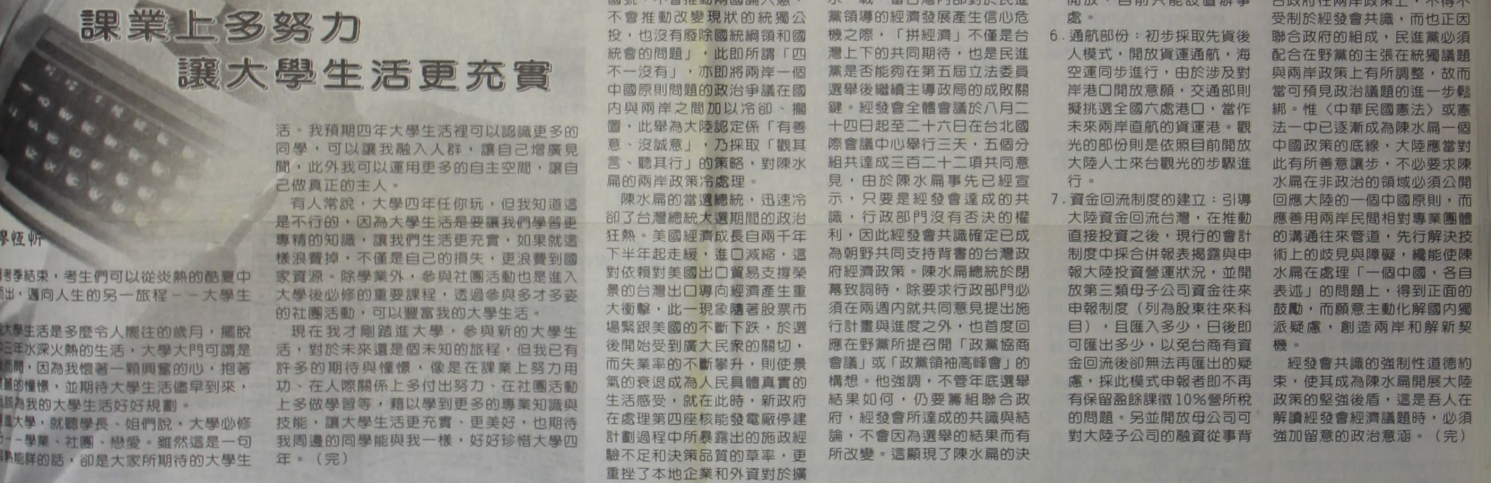 課業上多努力
讓大學生活更充實
學恆忻
考季結束，考生們可以從炎熱的酷夏中
出，邁向人生的另一旅程－－大學生
大學生活是多麼令人嚮往的歲月，擺脫
中三年水深火熱的生活，大學大門可謂是
因為我懷著一顆興奮的心，抱著
的憧憬，並期待大學生活儘早到來，
為我的大學生活好好規劃。
大學，就聽學長、姐們說，大學必修
－－學業、社團、戀愛。雖然這是一句
熟能詳的話，卻是大家所期待的大學生
活。我預期四年大學生活裡可以認識更多的
同學，可以讓我融入人群，讓自己增廣見
聞，此外我可以運用更多的自主空間，讓自
己做真正的主人。
有人常說，大學四年任你玩，但我知道這
是不行的，因為大學生活是要讓我們學習更
專精的知識，讓我們生活更充實，如果就這
樣浪費掉，不僅是自己的損失，更浪費到國
家資源。除學業外，參與社團活動也是進入
大學後必修的重要課程，透過參與多才多姿
的社團活動，可以豐富我的大學生活。
現在我才剛踏進大學，參與新的大學生
活，對於未來還是個未知的旅程，但我已有
許多的期待與憧憬，像是在課業上努力用
功、在人際關係上多付出努力、在社團活動
上多做學習等，藉以學到更多的專業知識與
技能，讓大學生活更充實、更美好，也期待
我周邊的同學能與我一樣，好好珍惜大學四
年。（完）
不會推動改變現狀的統獨公
投，也沒有廢除國統綱領和國
統會的問題」，此即所謂「四
不一沒有」，亦即將兩岸一個
中國原則問題的政治爭議在國
內與兩岸之間加以冷卻、擱
置，此舉為大陸認定係「有善
意、沒誠意」，乃採取「觀其
言、聽其行」的策略，對陳水
扁的兩岸政策冷處理。
陳水扁的當選總統，迅速冷
卻了台灣總統大選期間的政治
狂熱。美國經濟成長自兩千年
下半年起走緩，進口減縮，這
對依賴對美國出口貿易支撐榮
景的台灣出口導向經濟產生重
大衝擊，此一現象隨著股票市
場緊跟美國的不斷下跌，於選
後開始受到廣大民眾的關切，
而失業率的不斷攀升，則使景
氣的衰退成為人民具體真實的
生活感受，就在此時，新政府
在處理第四座核能發電廠停建
計劃過程中所暴露出的施政經
驗不足和決策品質的草率，更
重挫了本地企業和外資對於擴
黨領導的經濟發展產生信心危
機之際，「拼經濟」不僅是台
灣上下的共同期待，也是民進
黨是否能夠在第五屆立法委員
選舉後繼續主導政局的成敗關
鍵。經發會全體會議於八月二
十四日起至二十六日在台北國
際會議中心舉行三天，五個分
組共達成三百二十二項共同意
見，由於陳水扁事先已經宣
示，只要是經發會達成的共
識，行政部門沒有否決的權
利，因此經發會共識確定已成
為朝野共同支持背書的台灣政
府經濟政策。陳水扁總統於閉
幕致詞時，除要求行政部門必
須在兩週內就共同意見提出施
行計畫與進度之外，也首度回
應在野黨所提召開「政黨協商
會議」或「政黨領袖高峰會」的
構想。他強調，不管年底選舉
結果如何，仍要籌組聯合政
府，經發會所達成的共識與結
論，不會因為選舉的結果而有
所改變。這顯現了陳水扁的決
開放，目前只能設置辦事
處。
6．通航部份：初步採取先貨後
人模式，開放貨運通航，海
空運同步進行，由於涉及對
岸港口開放意願，交通部則
擬挑選全國六處港口，當作
未來兩岸直航的貨運港。觀
光的部份則是依照目前開放
大陸人士來台觀光的步驟進
行。
7．資金回流制度的建立：引導
大陸資金回流台灣，在推動
直接投資之後，現行的會計
制度中採合併報表揭露與申
報大陸投資營運狀況，並開
放第三類母子公司資金往來
申報制度（列為股東往來科
目），且匯入多少，日後即
可匯出多少，以免台商有資
金回流後卻無法再匯出的疑
慮，採此模式申報者即不再
有保留盈餘課徵10％營所稅
的問題。另並開放母公司可
對大陸子公司的融資從事背
台政府在兩岸政策上，不得不
受制於經發會共識，而也正因
聯合政府的組成，民進黨必須
配合在野黨的主張在統獨議題
與兩岸政策上有所調整，故而
當可預見政治議題的進一步鬆
綁。惟〈中華民國憲法〉或憲
法一中已逐漸成為陳水扁一個
中國政策的底線，大陸應當對
此有所善意讓步，不必要求陳
水扁在非政治的領域必須公開
回應大陸的一個中國原則，而
應善用兩岸民間相對專業團體
的溝通往來管道，先行解決技
術上的歧見與障礙，纔能使陳
水扁在處理「一個中國，各自
表述」的問題上，得到正面的
鼓勵，而願意主動化解國內獨
派疑慮，創造兩岸和解新契
機。
經發會共識的強制性道德約
束，使其成為陳水扁開展大陸
政策的堅強後盾，這是吾人在
解讀經發會經濟議題時，必須
強加留意的政治意涵。（完）